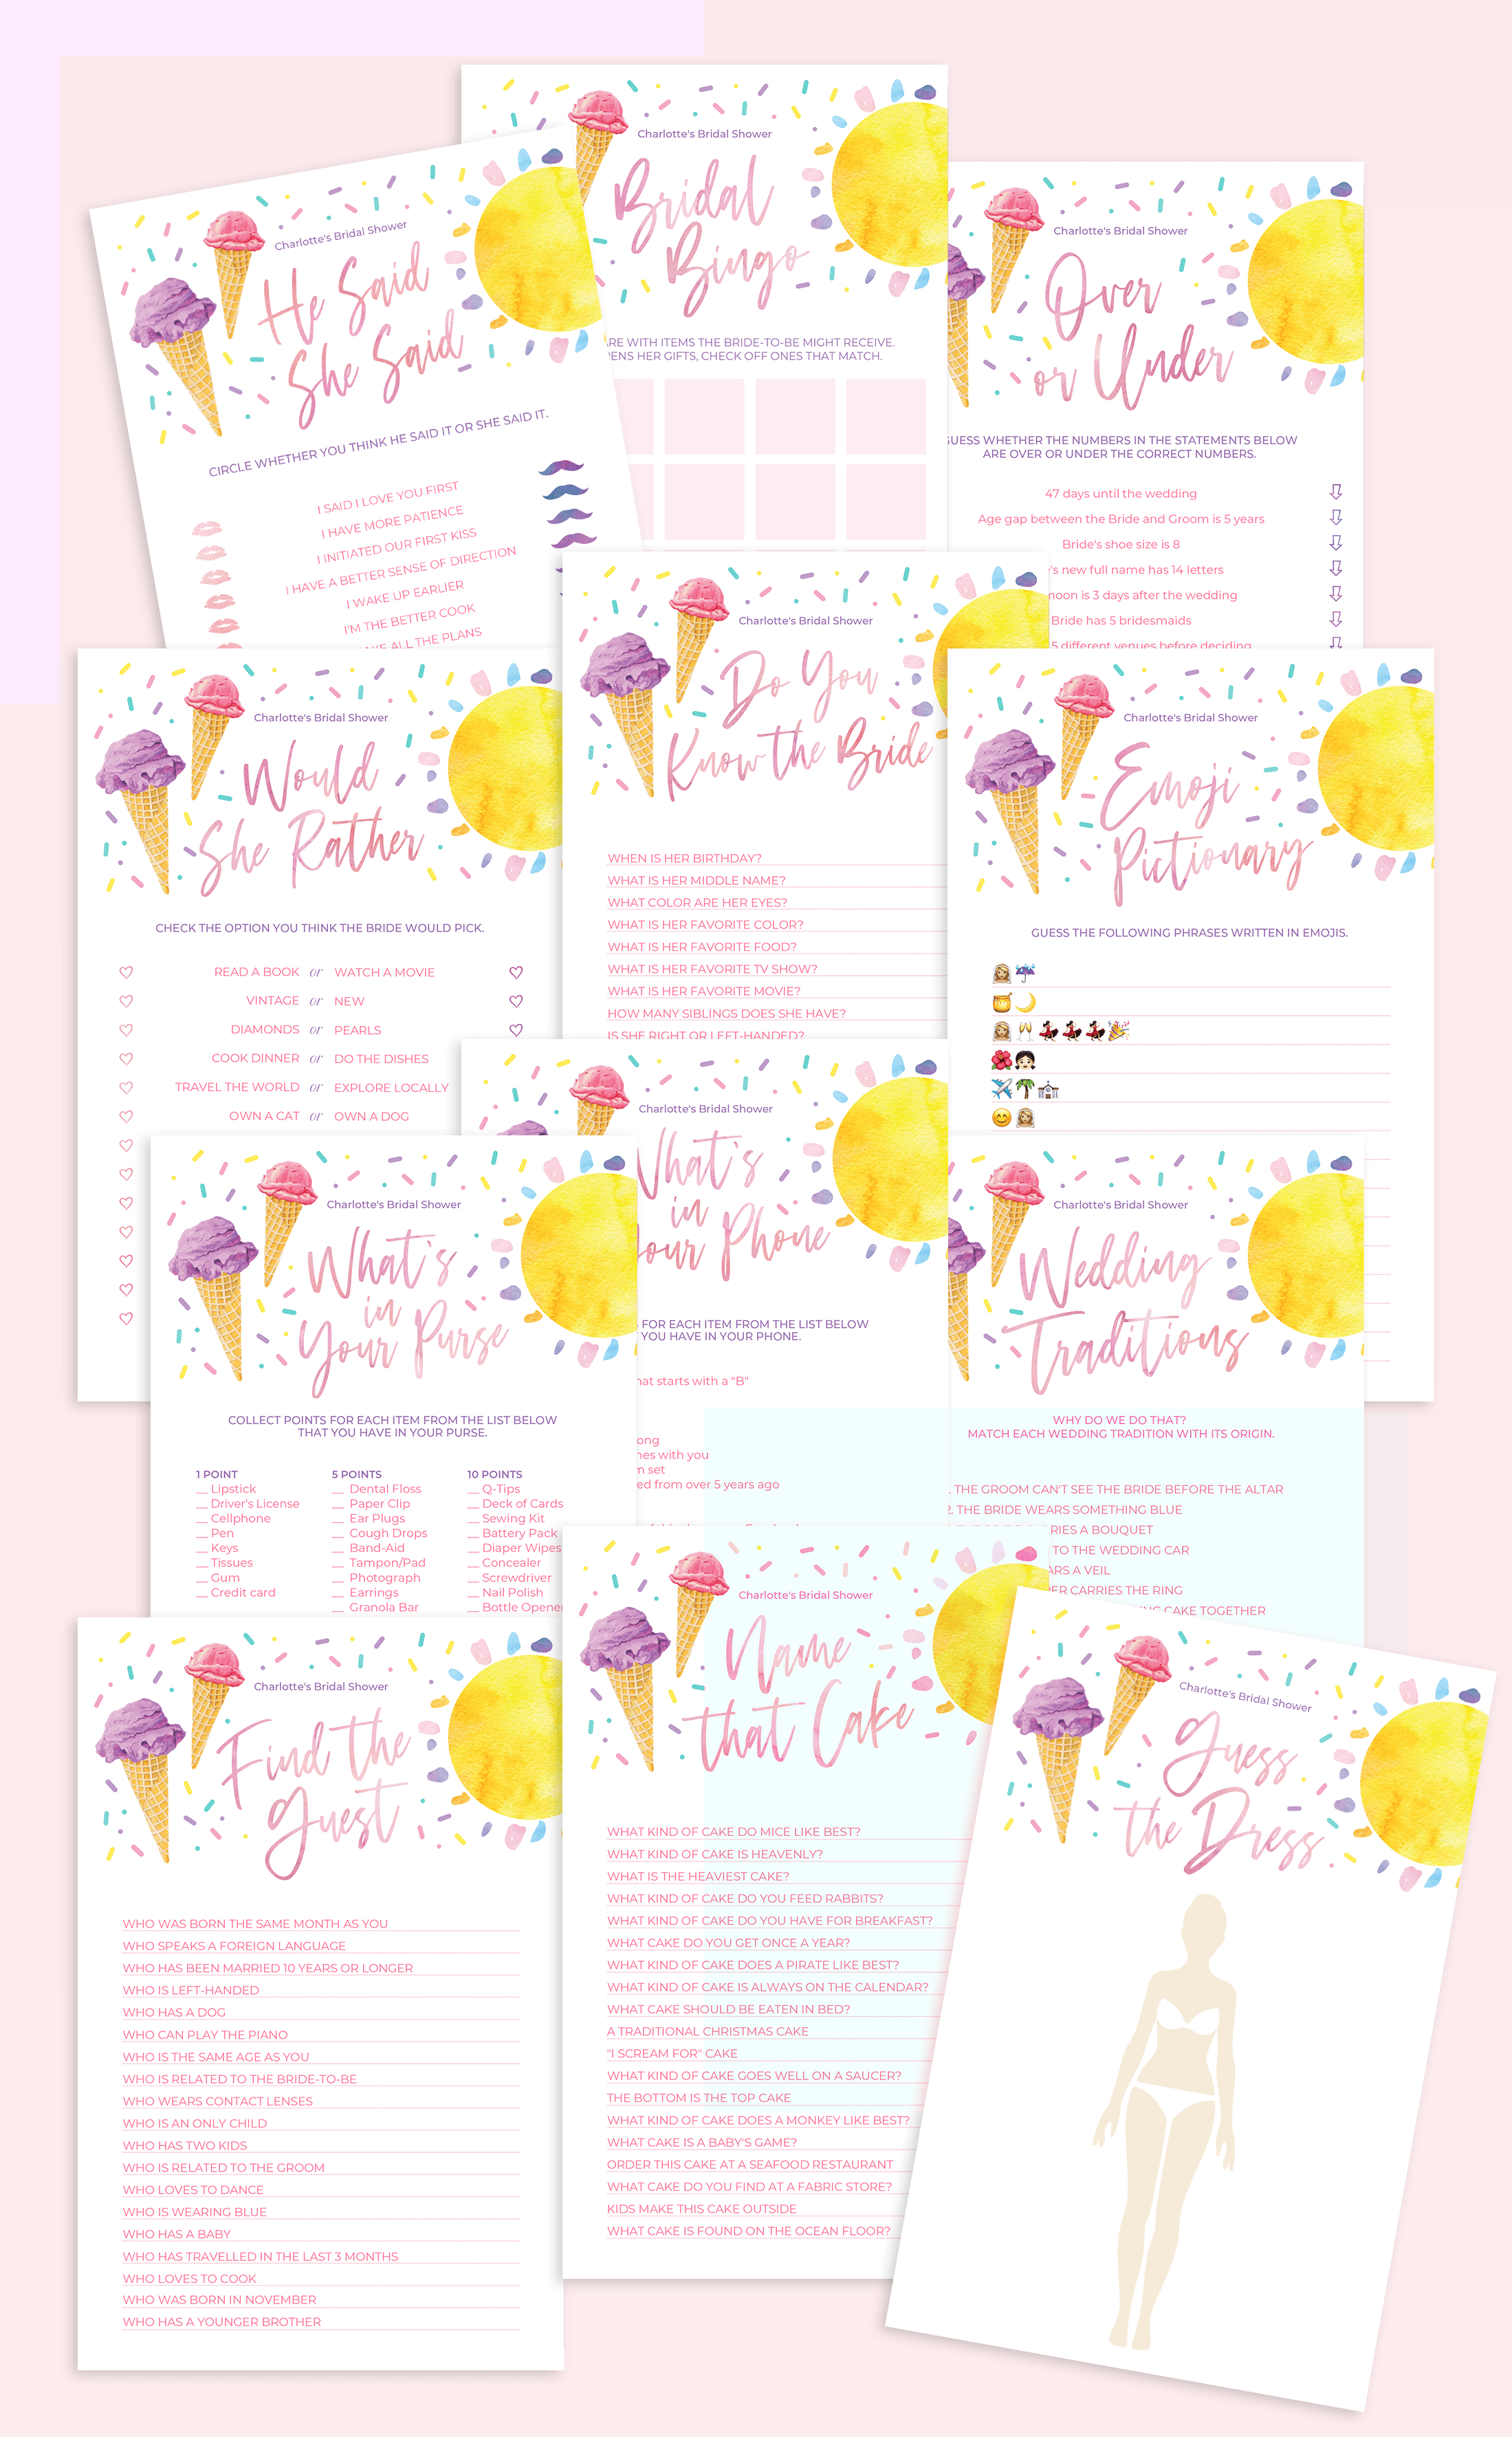 Charlotte's Bridal Shower
He Said
She Said
CIRCLE WHETHER YOU THINK HE SAID IT OR SHE SAID IT.
I SAID I LOVE YOU FIRST
I HAVE MORE PATIENCE
I INITIATED OUR FIRST KISS
I HAVE A BETTER SENSE OF DIRECTION
I WAKE UP EARLIER
I'M THE BETTER COOK
ALL THE PLANS
Charlotte's Bridal Shower
Bridal
Bingo
WITH ITEMS THE BRIDE-TO-BE MIGHT RECEIVE.
HER GIFTS, CHECK OFF ONES THAT MATCH.
Charlotte's Bridal Shower
Over
or Under
GUESS WHETHER THE NUMBERS IN THE STATEMENTS BELOW
ARE OVER OR UNDER THE CORRECT NUMBERS.
47 days until the wedding
Age gap between the Bride and Groom is 5 years
Bride's shoe size is 8
new full name has 14 letters
is 3 days after the wedding
Bride has 5 bridesmaids
5 different venues before deciding
Charlotte's Bridal Shower
Would
She Rather
CHECK THE OPTION YOU THINK THE BRIDE WOULD PICK.
READ A BOOK or WATCH A MOVIE
VINTAGE or NEW
DIAMONDS or PEARLS
COOK DINNER or DO THE DISHES
TRAVEL THE WORLD or EXPLORE LOCALLY
OWN A CAT or OWN A DOG
Charlotte's Bridal Shower
Do You
Know the Bride
WHEN IS HER BIRTHDAY?
WHAT IS HER MIDDLE NAME?
WHAT COLOR ARE HER EYES?
WHAT IS HER FAVORITE COLOR?
WHAT IS HER FAVORITE FOOD?
WHAT IS HER FAVORITE TV SHOW?
WHAT IS HER FAVORITE MOVIE?
HOW MANY SIBLINGS DOES SHE HAVE?
IS SHE RIGHT OR LEFT-HANDED?
Charlotte's Bridal Shower
Emoji
Pictionary
GUESS THE FOLLOWING PHRASES WRITTEN IN EMOJIS.
Charlotte's Bridal Shower
What's
in
Your Purse
COLLECT POINTS FOR EACH ITEM FROM THE LIST BELOW
THAT YOU HAVE IN YOUR PURSE.
1 POINT
__ Lipstick
__ Driver's License
__ Cellphone
__ Pen
__ Keys
__ Tissues
__ Gum
__ Credit card
5 POINTS
__ Dental Floss
__ Paper Clip
__ Ear Plugs
__ Cough Drops
__ Band-Aid
__ Tampon/Pad
__ Photograph
__ Earrings
__ Granola Bar
10 POINTS
__ Q-Tips
__ Deck of Cards
__ Sewing Kit
__ Battery Pack
__ Diaper Wipes
__ Concealer
__ Screwdriver
__ Nail Polish
__ Bottle Opener
Charlotte's Bridal Shower
What's
in
Your Phone
FOR EACH ITEM FROM THE LIST BELOW
YOU HAVE IN YOUR PHONE.
that starts with a "B"
with you
set
from over 5 years ago
Charlotte's Bridal Shower
Wedding
Traditions
WHY DO WE DO THAT?
MATCH EACH WEDDING TRADITION WITH ITS ORIGIN.
THE GROOM CAN'T SEE THE BRIDE BEFORE THE ALTAR
2. THE BRIDE WEARS SOMETHING BLUE
CARRIES A BOUQUET
TO THE WEDDING CAR
A VEIL
CARRIES THE RING
CAKE TOGETHER
Charlotte's Bridal Shower
Find the
Guest
WHO WAS BORN THE SAME MONTH AS YOU
WHO SPEAKS A FOREIGN LANGUAGE
WHO HAS BEEN MARRIED 10 YEARS OR LONGER
WHO IS LEFT-HANDED
WHO HAS A DOG
WHO CAN PLAY THE PIANO
WHO IS THE SAME AGE AS YOU
WHO IS RELATED TO THE BRIDE-TO-BE
WHO WEARS CONTACT LENSES
WHO IS AN ONLY CHILD
WHO HAS TWO KIDS
WHO IS RELATED TO THE GROOM
WHO LOVES TO DANCE
WHO IS WEARING BLUE
WHO HAS A BABY
WHO HAS TRAVELLED IN THE LAST 3 MONTHS
WHO LOVES TO COOK
WHO WAS BORN IN NOVEMBER
WHO HAS A YOUNGER BROTHER
Charlotte's Bridal Shower
Name
that Cake
WHAT KIND OF CAKE DO MICE LIKE BEST?
WHAT KIND OF CAKE IS HEAVENLY?
WHAT IS THE HEAVIEST CAKE?
WHAT KIND OF CAKE DO YOU FEED RABBITS?
WHAT KIND OF CAKE DO YOU HAVE FOR BREAKFAST?
WHAT CAKE DO YOU GET ONCE A YEAR?
WHAT KIND OF CAKE DOES A PIRATE LIKE BEST?
WHAT KIND OF CAKE IS ALWAYS ON THE CALENDAR?
WHAT CAKE SHOULD BE EATEN IN BED?
A TRADITIONAL CHRISTMAS CAKE
"I SCREAM FOR" CAKE
WHAT KIND OF CAKE GOES WELL ON A SAUCER?
THE BOTTOM IS THE TOP CAKE
WHAT KIND OF CAKE DOES A MONKEY LIKE BEST?
WHAT CAKE IS A BABY'S GAME?
ORDER THIS CAKE AT A SEAFOOD RESTAURANT
WHAT CAKE DO YOU FIND AT A FABRIC STORE?
KIDS MAKE THIS CAKE OUTSIDE
WHAT CAKE IS FOUND ON THE OCEAN FLOOR?
Charlotte's Bridal Shower
Guess
the Dress